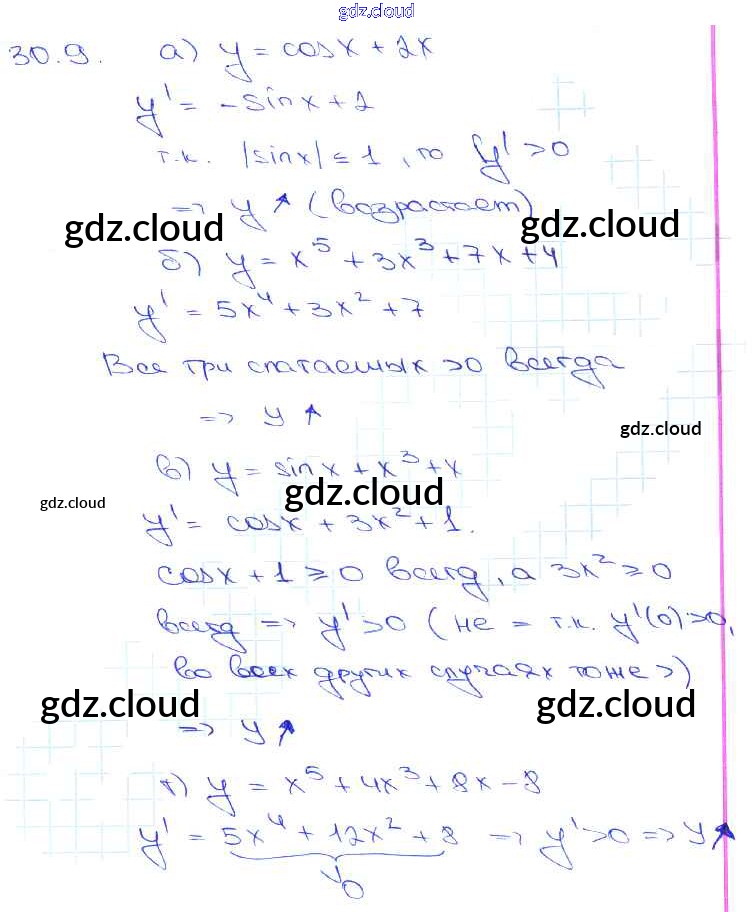 gdz.cloud
30.9. а) y = cosx + 2x
y' = -sinx + 2
т.к. |sinx| ≤ 1, то y' > 0
=> y ↑ (возрастает)
gdz.cloud gdz.cloud
б) y = x⁵ + 3x³ + 7x + 4
y' = 5x⁴ + 3x² + 7
Все три слагаемых >0 всегда
=> y ↑
gdz.cloud
в) y = sinx + x³ + x
gdz.cloud gdz.cloud
y' = cosx + 3x² + 1.
cosx + 1 ≥ 0 всегд, а 3x² ≥ 0
всегд => y' > 0 (не = т.к. y'(0) > 0,
во всех других случаях тоже >)
gdz.cloud gdz.cloud
=> y ↑
г) y = x⁵ + 4x³ + 8x - 8
y' = 5x⁴ + 12x² + 8 => y' > 0 => y ↑
∨
0